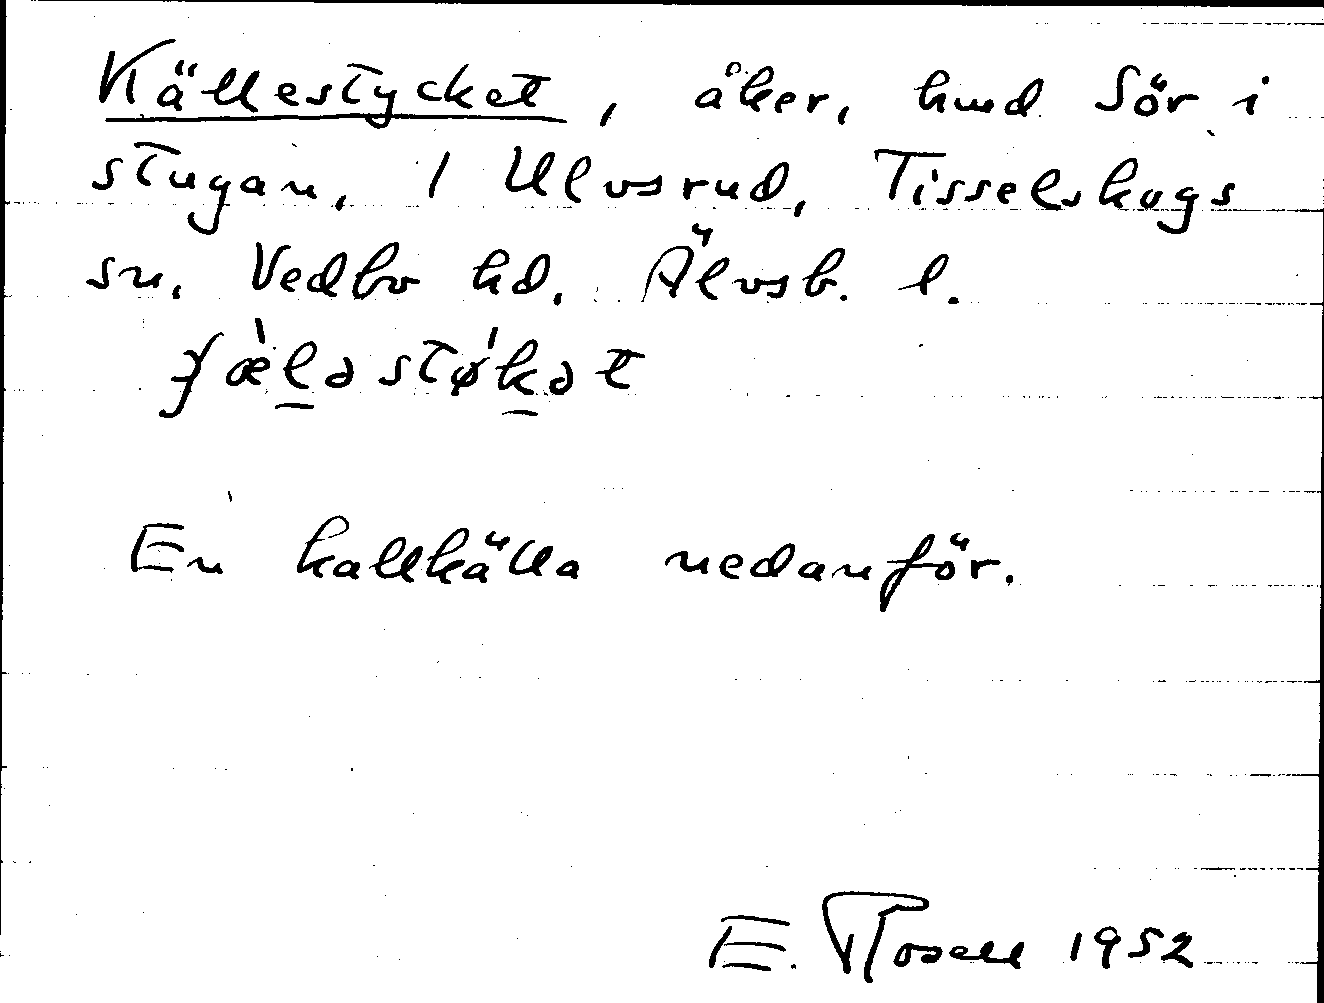 Källestycket, åker, hmd Sör i
stugan, 1 Ulvsrud, Tisselskogs
sn. Vedbo hd. Älvsb. l.
En kallkälla nedanför.
E. Rosell 1952